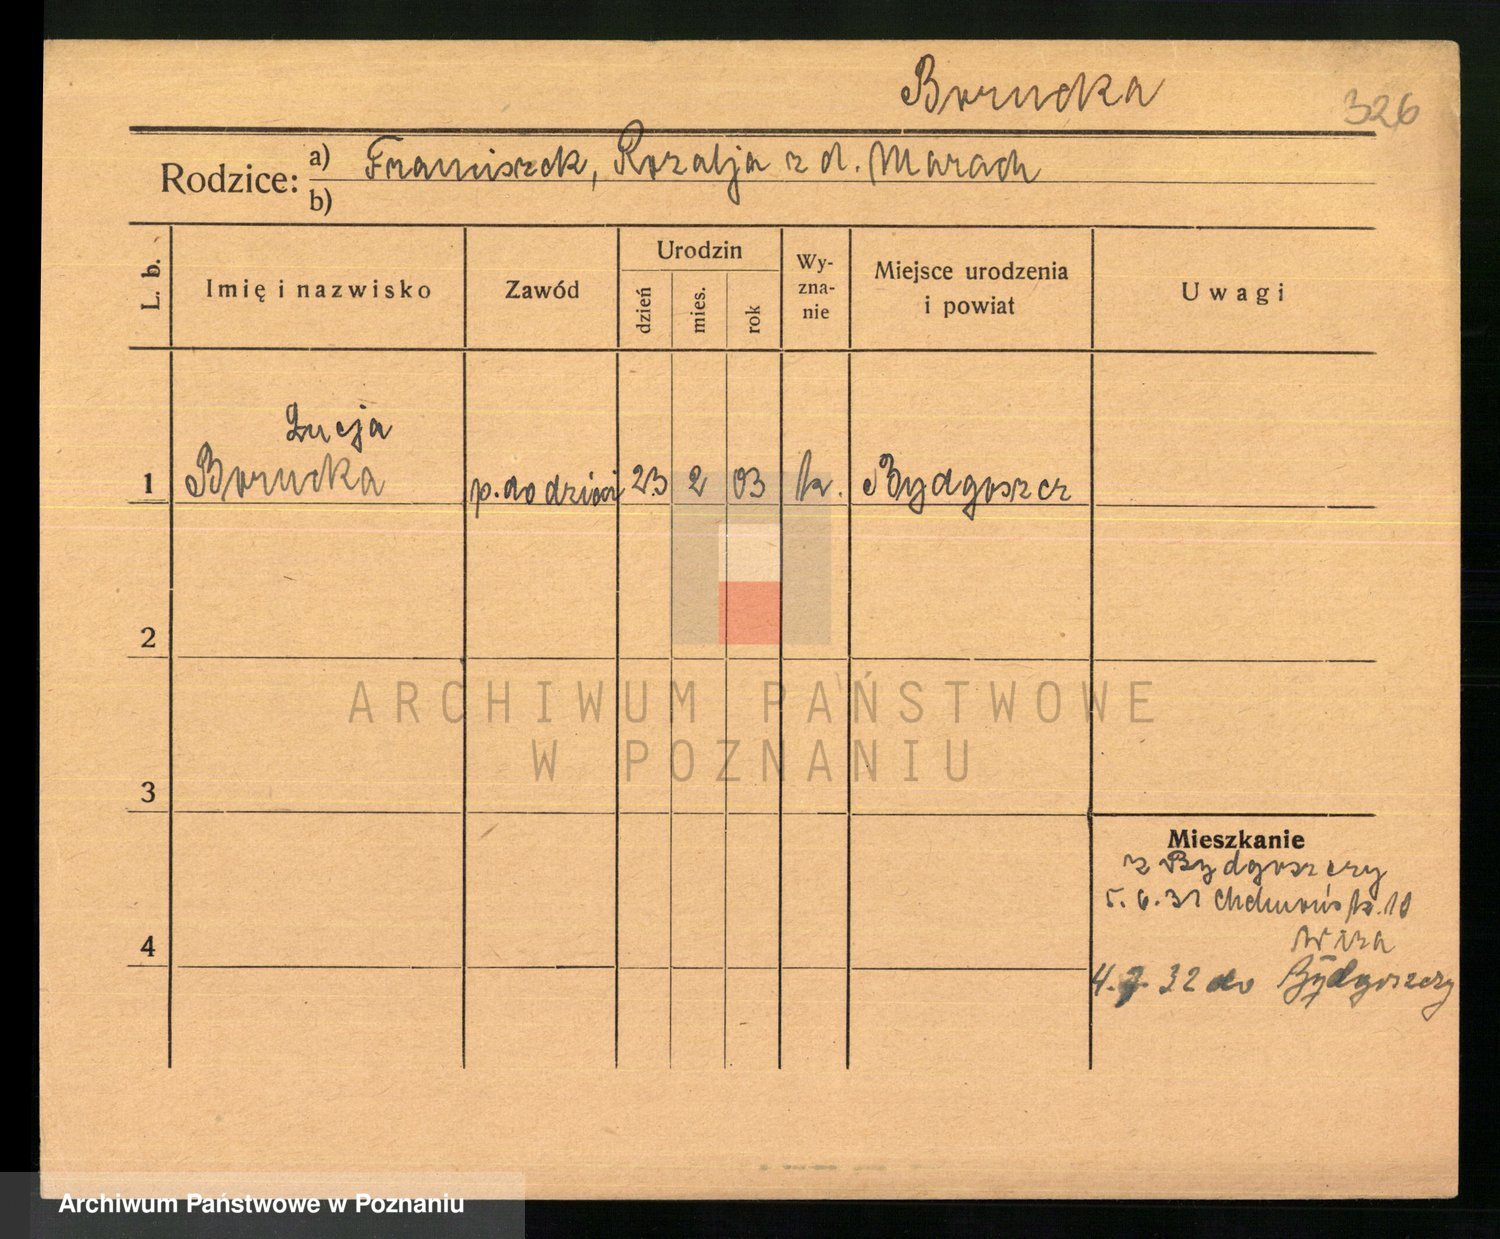 Borucka
326
Rodzice: a) Franciszek, Rozalja z d. Marach
b)
L. b. Imię i nazwisko Zawód Urodzin dzień mies. rok Wy-zna-nie Miejsce urodzenia i powiat Uwagi
Łucja
1 Borucka p. do dzieci 23 2 03 k. Bydgoszcz
2
ARCHIWUM PAŃSTWOWE
W POZNANIU
3
Mieszkanie
z Bydgoszczy
5. 6. 31 Chełmońsk. 10
4
4. 32 do Bydgoszczy
Archiwum Państwowe w Poznaniu